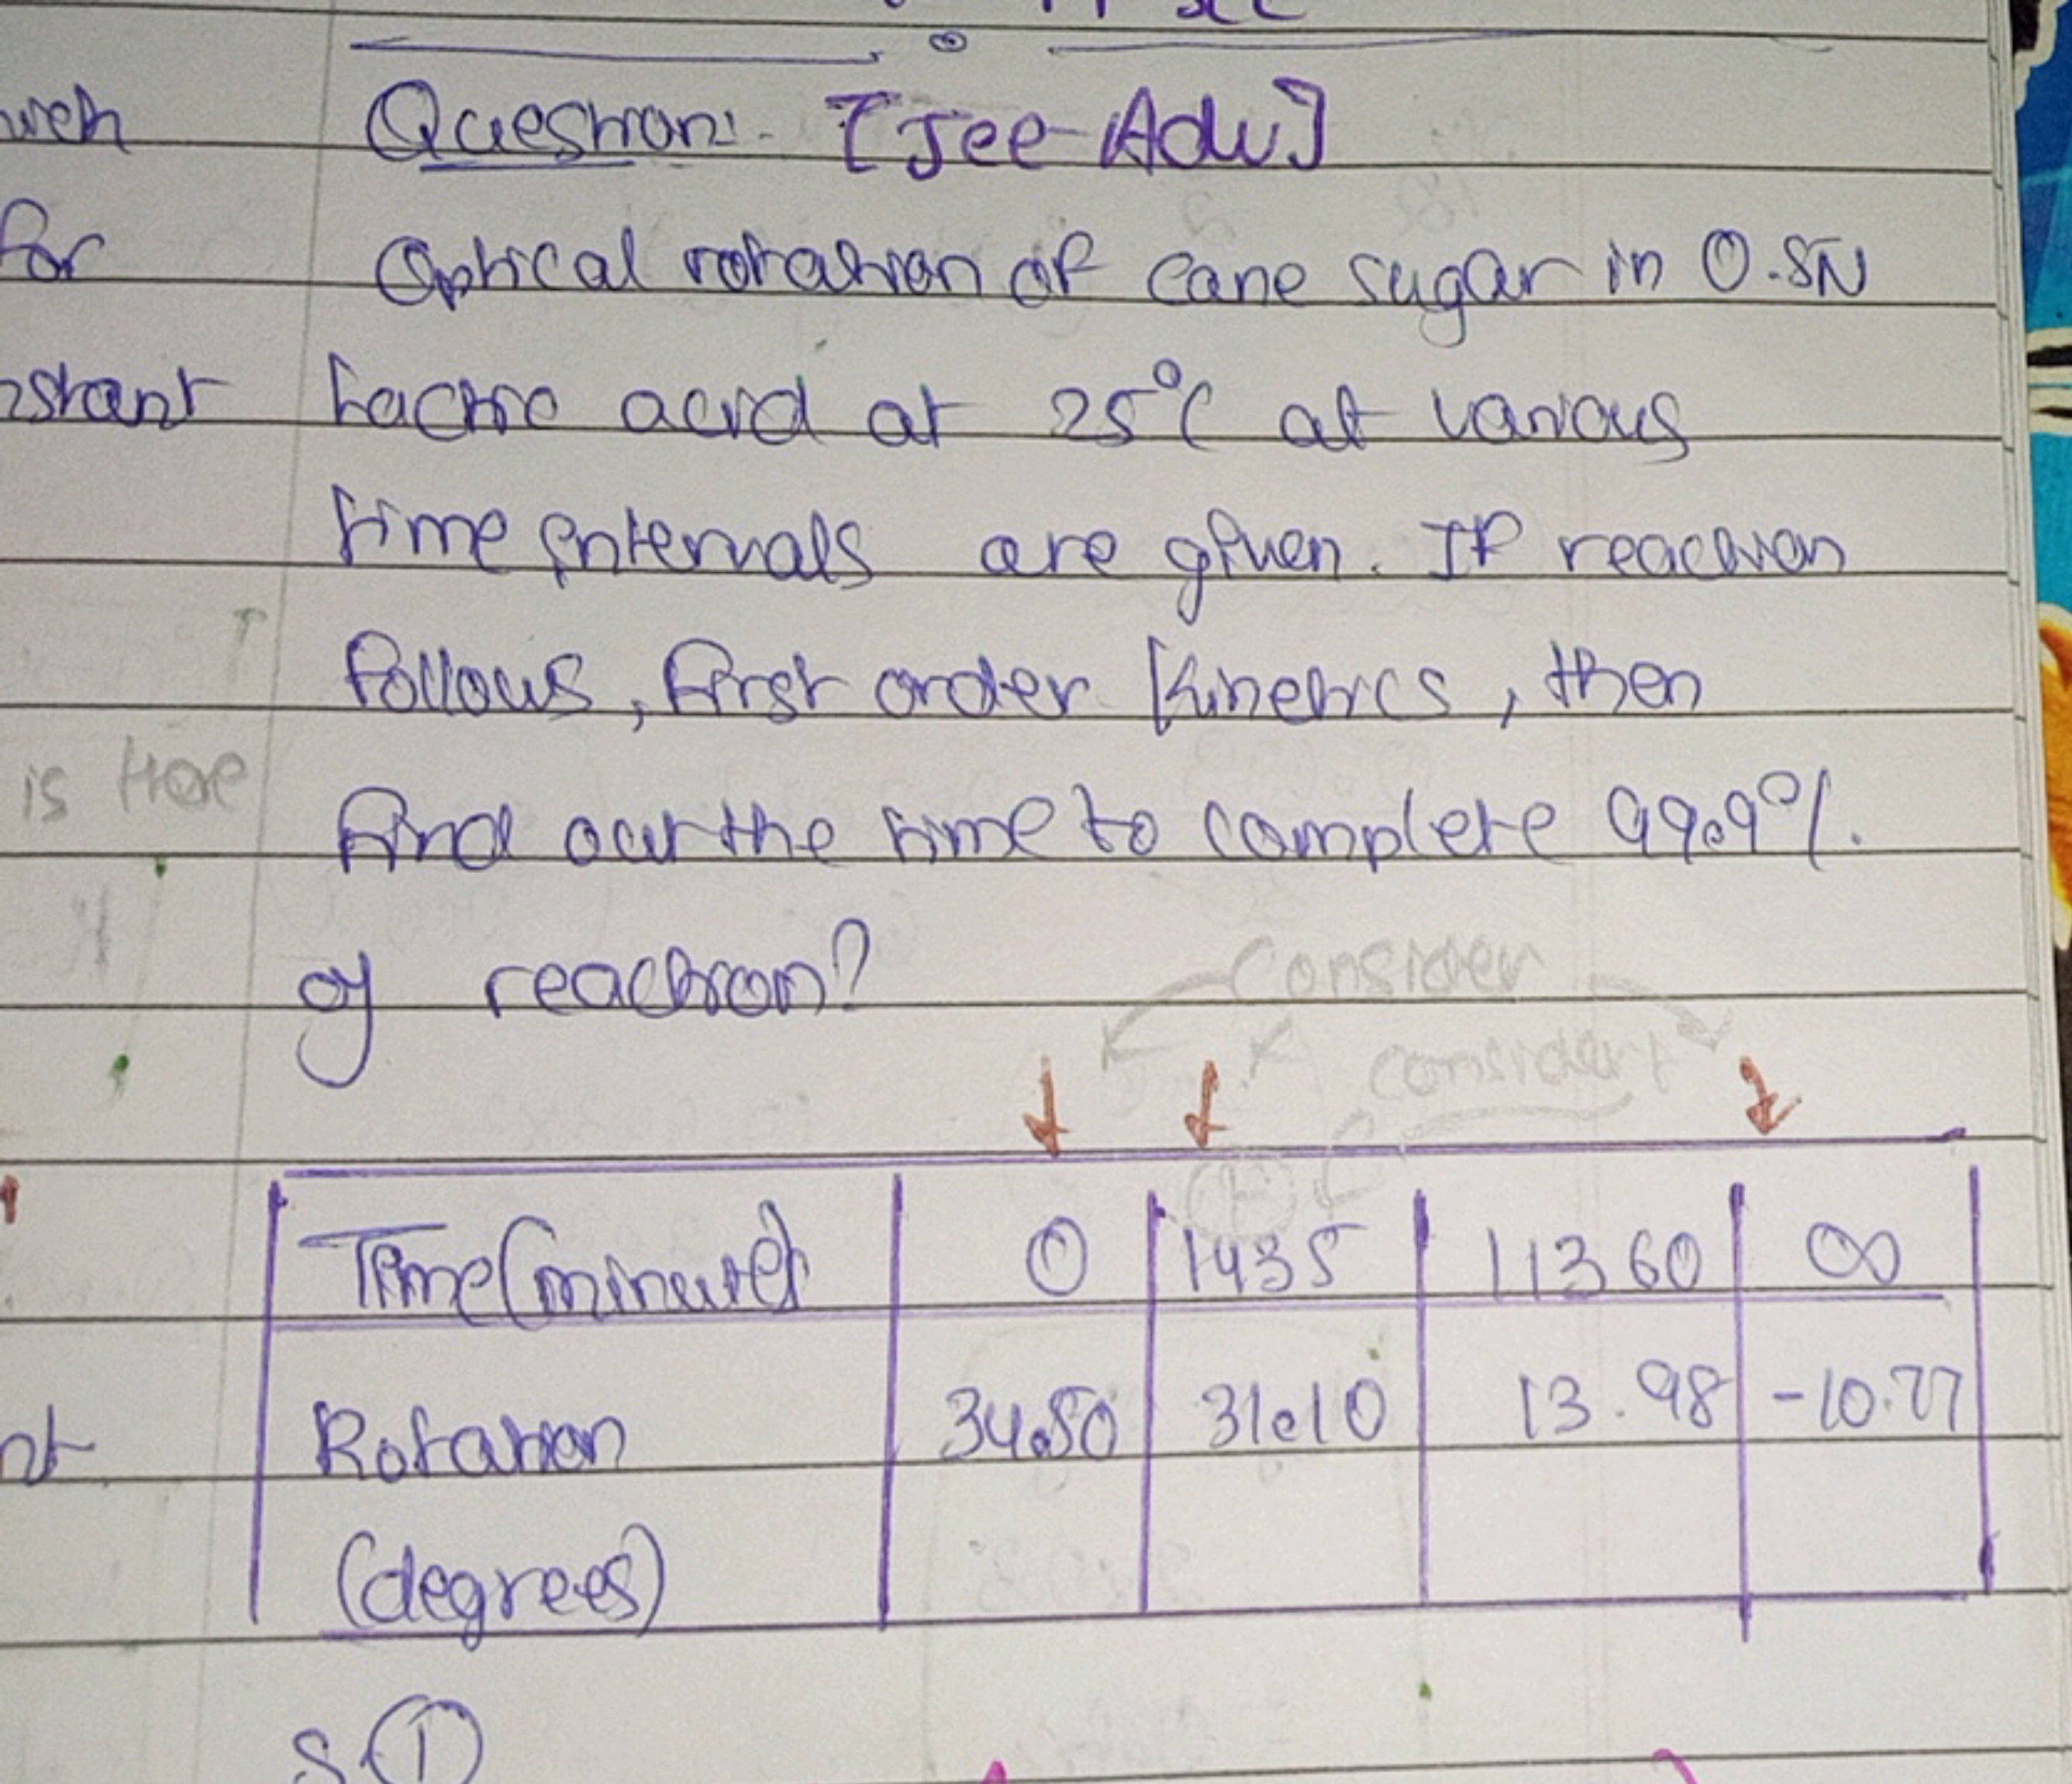 wch Question:- [Jee-Adv]
for Optical rotation of cane sugar in 0.5N
nstant Lactic acid at 25°C at various
time intervals are given. If reaction
follows, first order Kinetics, then
is Hoe find out the time to complete 99.9%.
of reaction?
Consider
considert
Time(minute) 0 1435 11360 ∞
nt Rotation 34.50 31.10 13.98 -10.77
(degrees)
S ①